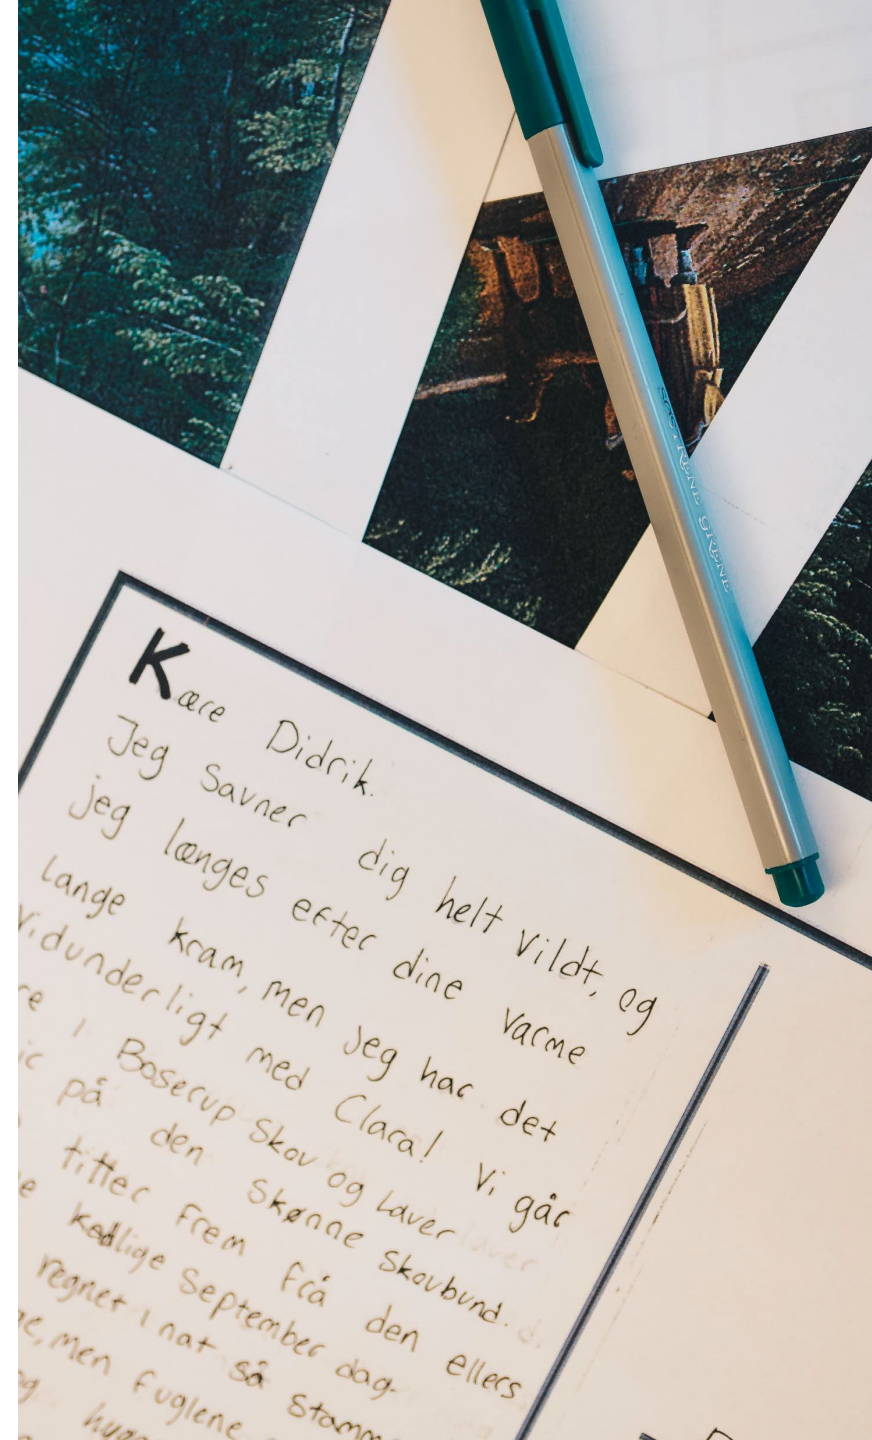 SØSTRENE GRENE
Kære Didrik.
Jeg savner dig helt vildt, og
jeg længes efter dine varme
lange kram, men jeg har det
vidunderligt med Clara! Vi går
re i Boserup Skov og laver
ic på den skønne skovbund.
titter frem frå den ellers
kedlige September dag.
regnet i nat så stamm
ne, men fuglene
og